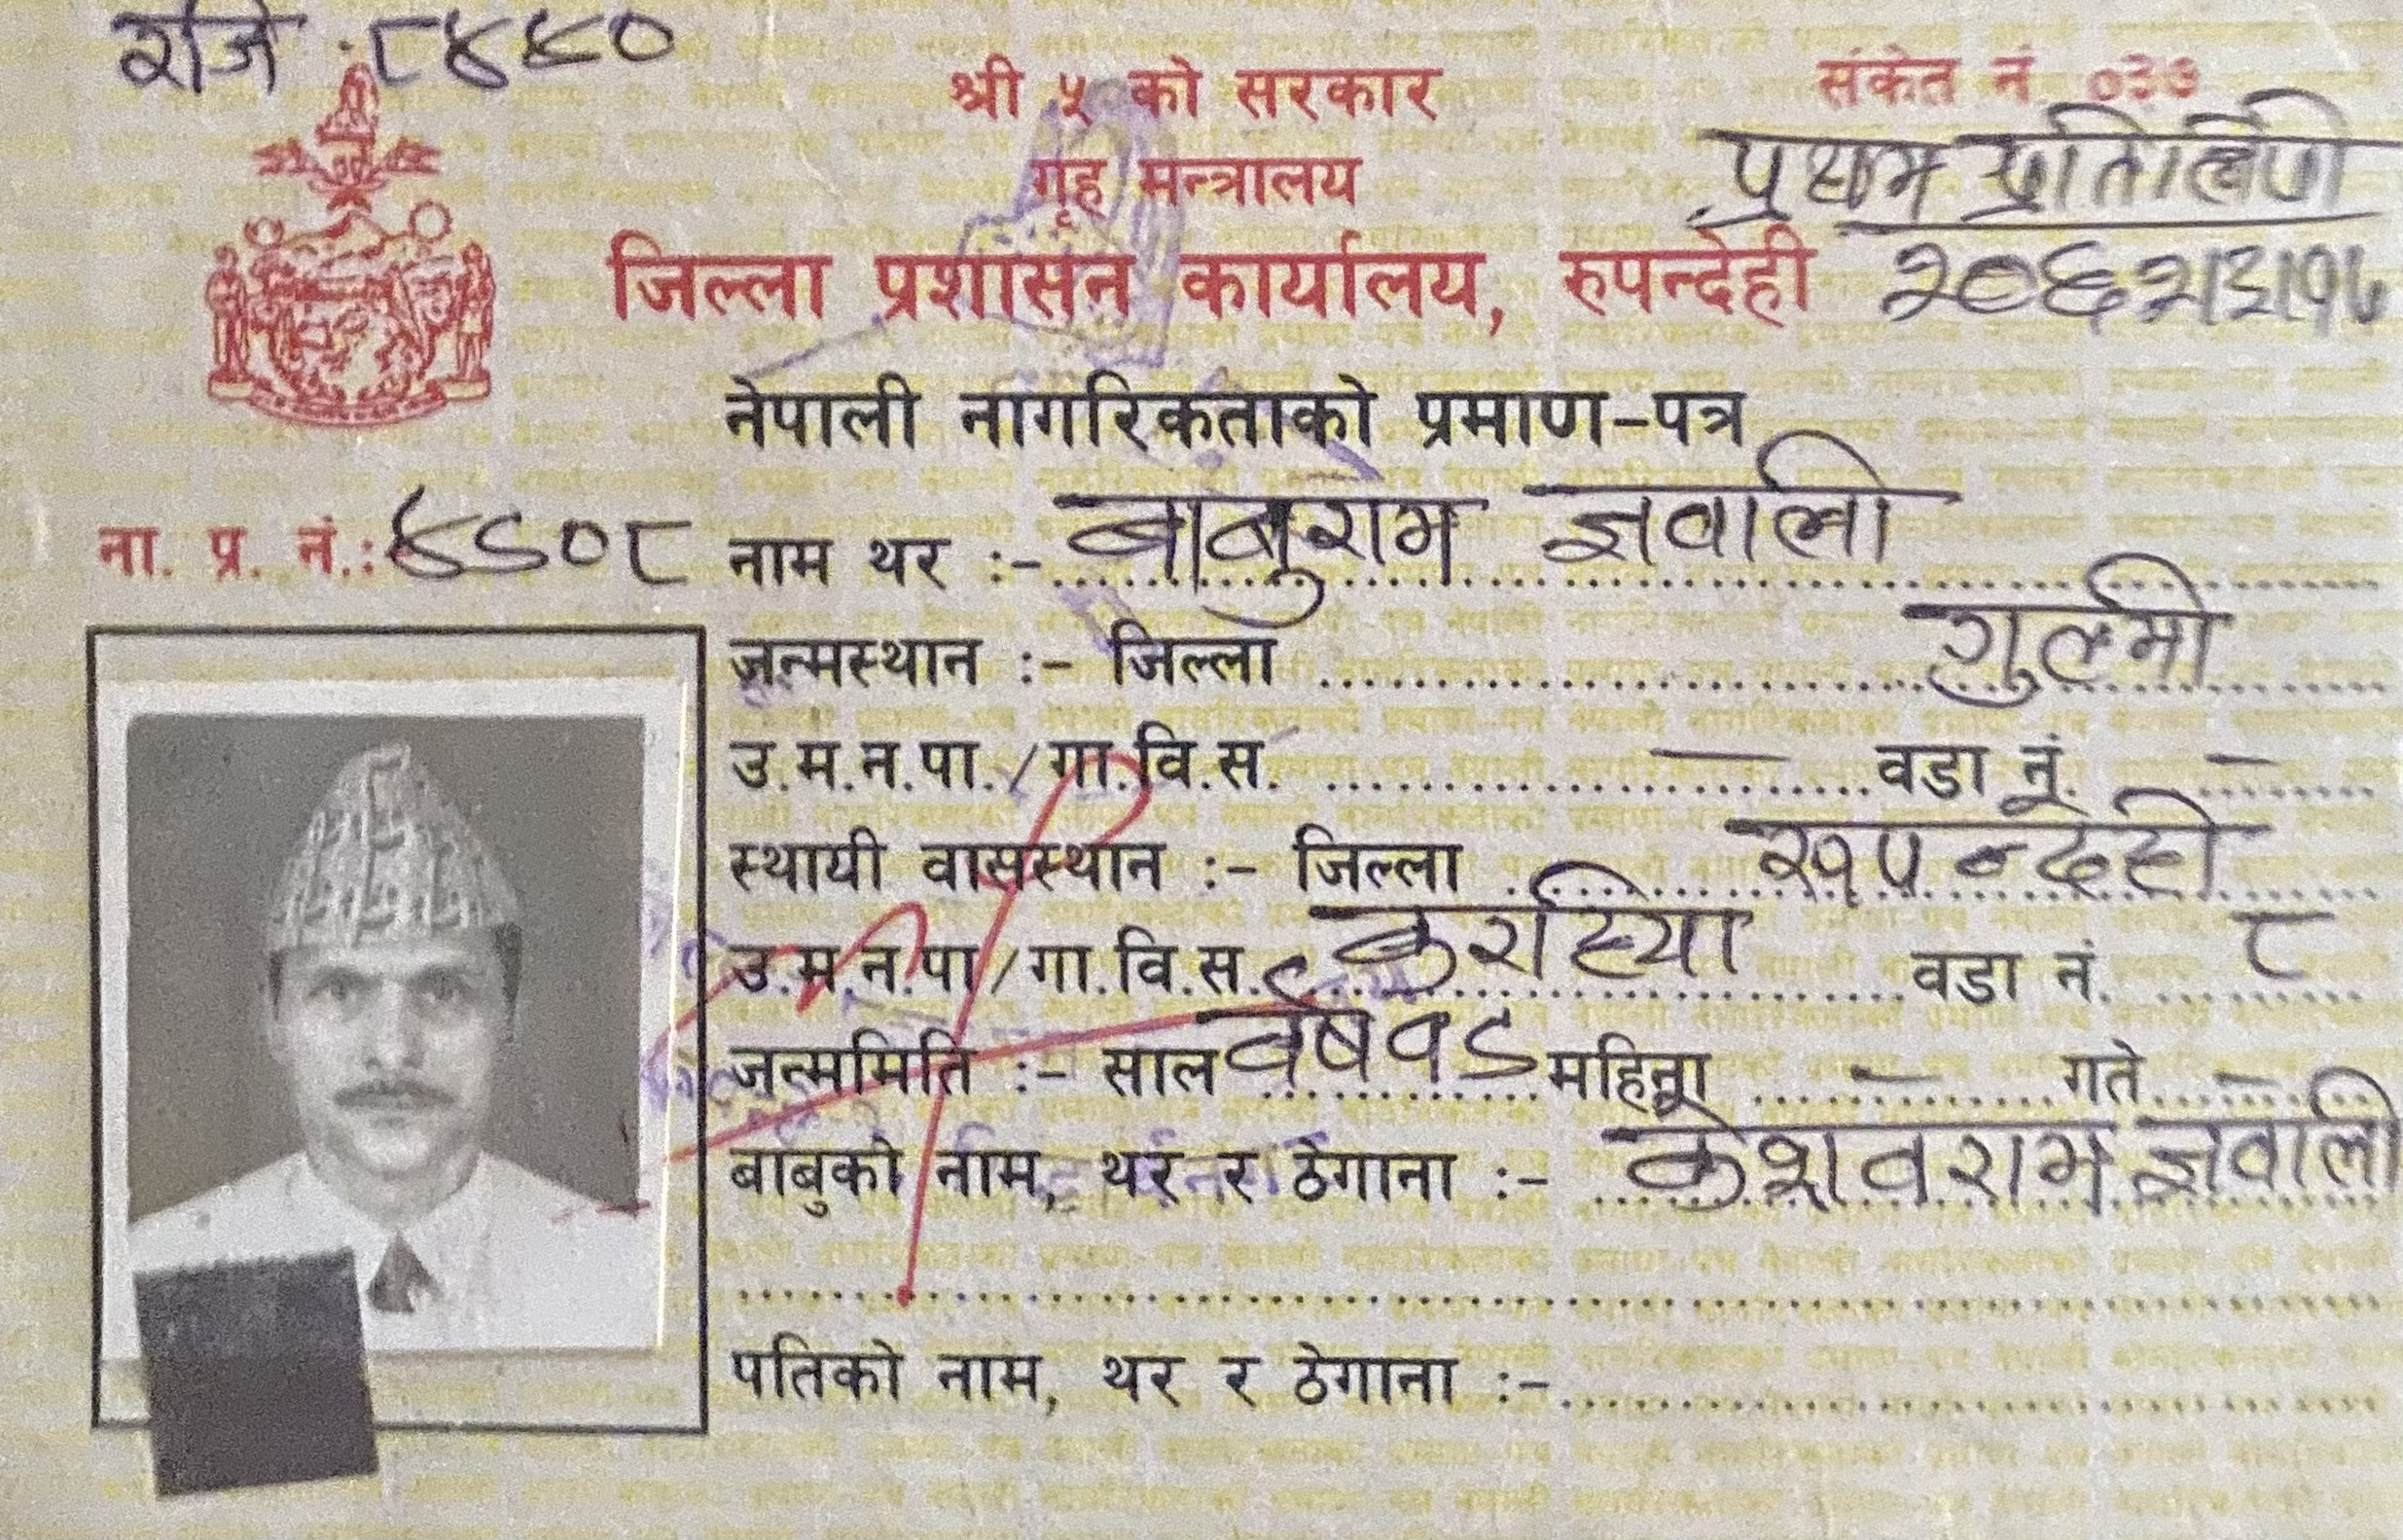 रजि : ८४४०
श्री ५ को सरकार
संकेत नं. ०३७
गृह मन्त्रालय
प्रथम प्रतिलिपि
जिल्ला प्रशासन कार्यालय, रुपन्देही
२०६२।३।१७
नेपाली नागरिकताको प्रमाण-पत्र
ना. प्र. नं.: ४९०८
नाम थर :- बाबुराम ज्ञवाली
जन्मस्थान :- जिल्ला गुल्मी
उ.म.न.पा./गा.वि.स. — वडा नं. —
स्थायी वासस्थान :- जिल्ला रुपन्देही
उ.म.न.पा/गा.वि.स. करहिया वडा नं. ८
जन्ममिति :- साल वर्ष १९ महिना — गते —
बाबुको नाम, थर र ठेगाना :- केशवराम ज्ञवाली
पतिको नाम, थर र ठेगाना :-